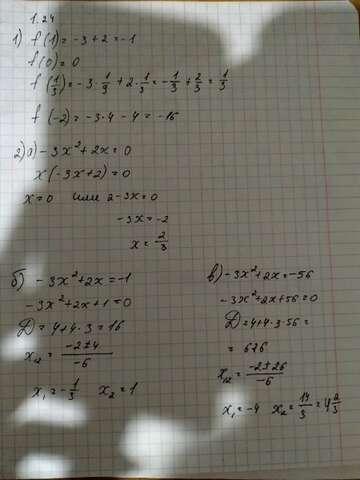 1.24
1) f(1) = -3 + 2 = -1
f(0) = 0
f(1/3) = -3 · 1/9 + 2 · 1/3 = -1/3 + 2/3 = 1/3
f(-2) = -3·4 - 4 = -16
2) а) -3x² + 2x = 0
x(-3x+2) = 0
x = 0 или 2-3x=0
-3x = -2
x = 2/3
б) -3x² + 2x = -1
-3x² + 2x + 1 = 0
D = 4+4·3 = 16
x₁,₂ = (-2±4)/-6
x₁ = -1/3 x₂ = 1
в) -3x² + 2x = -56
-3x² + 2x + 56 = 0
D = 4+4·3·56 =
= 676
x₁,₂ = (-2±26)/-6
x₁ = -4 x₂ = 14/3 = 4 2/3